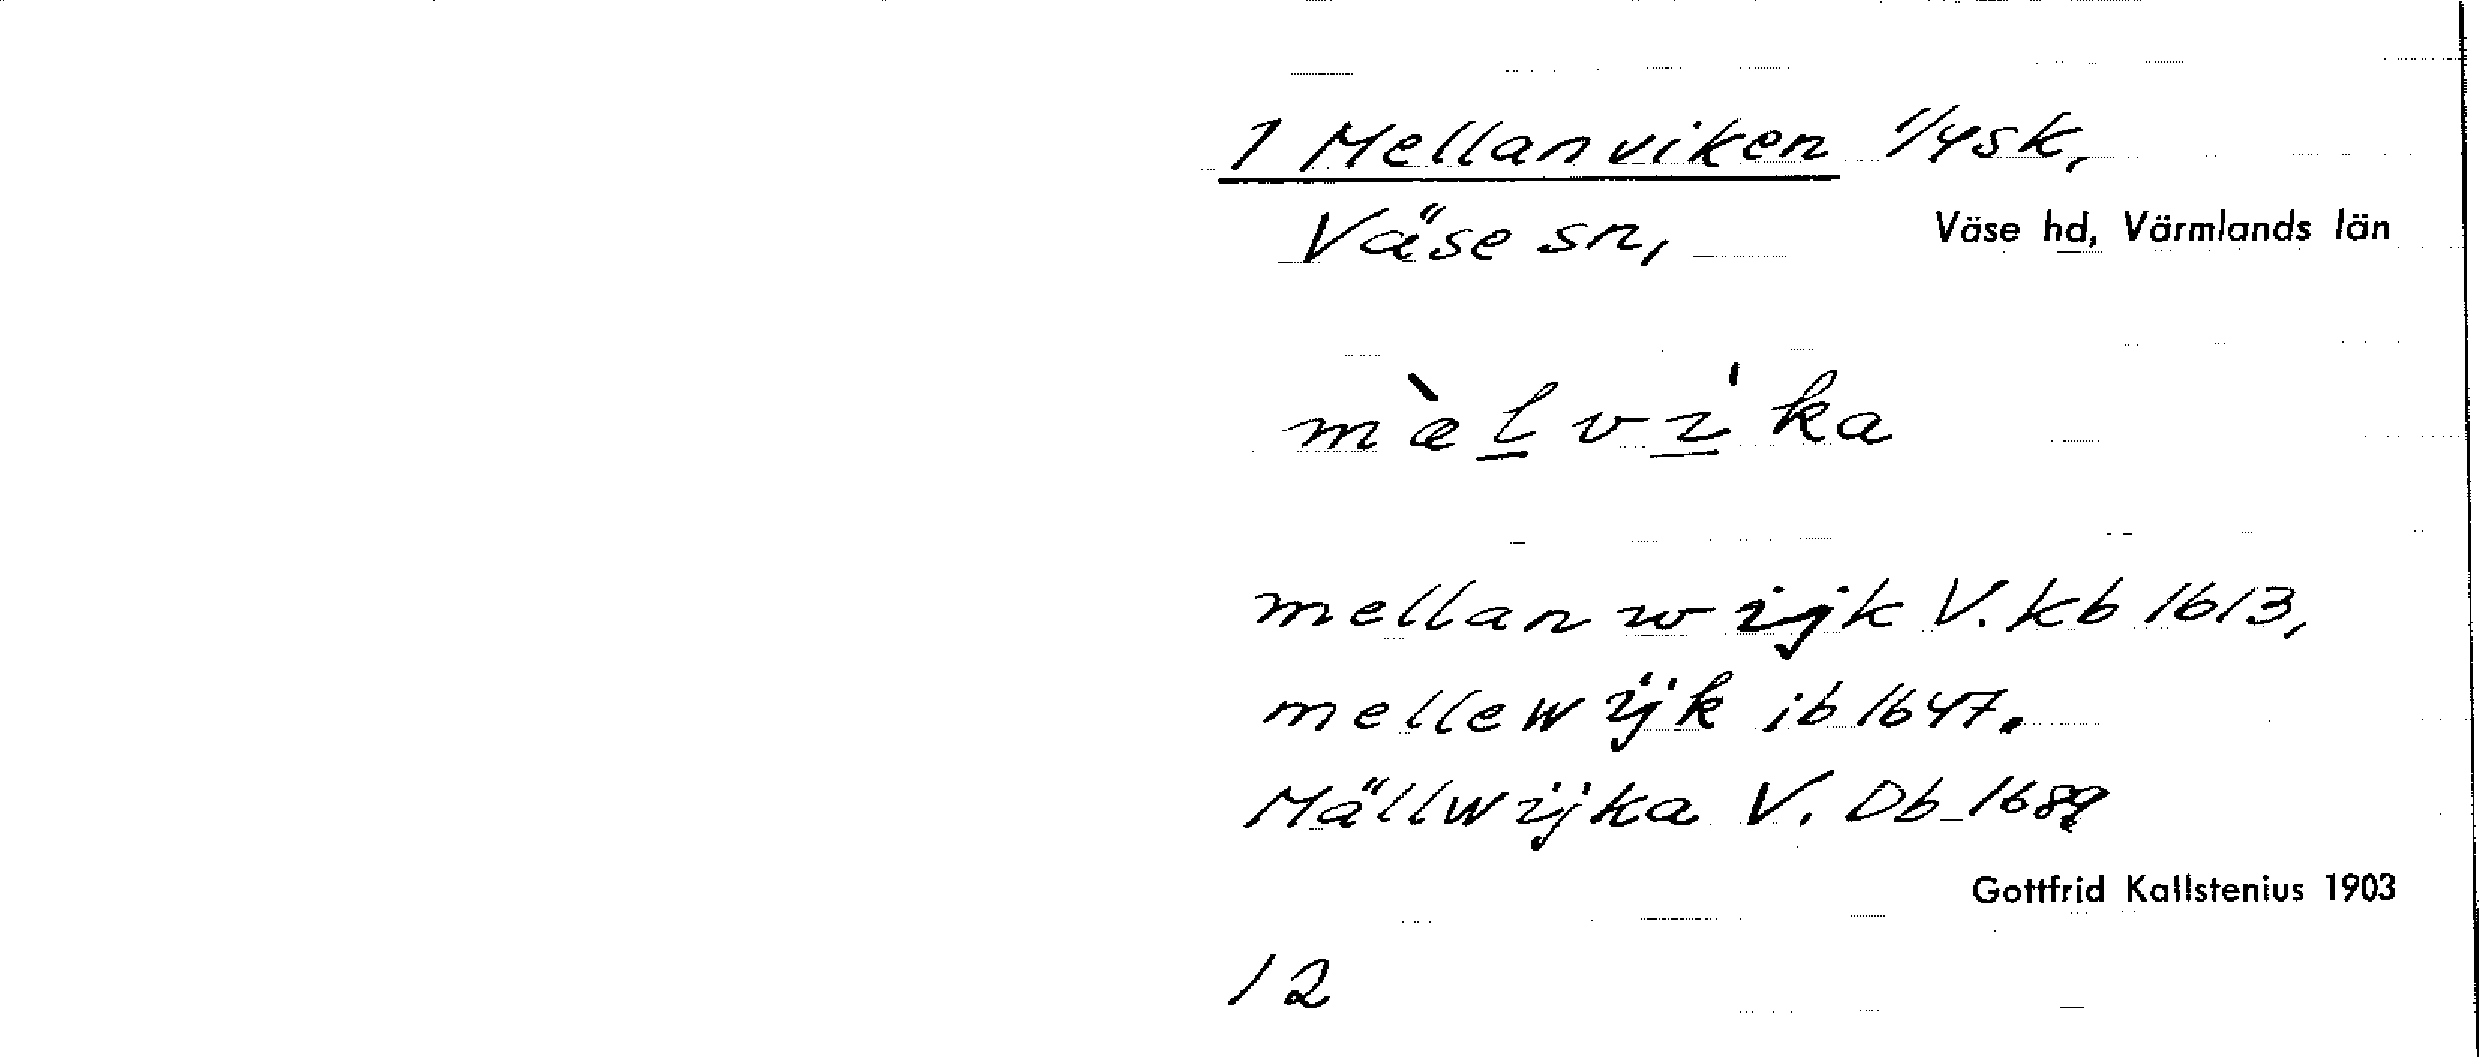 1 Mellanviken 1/4 sk,
Väse sn, Väse hd, Värmlands län
mæ̀l̲vi̲̍ka
mellanwijk V. kb 1613,
mellewijk ib 1647.
Mällwijka V. Db 1689
Gottfrid Kallstenius 1903
12